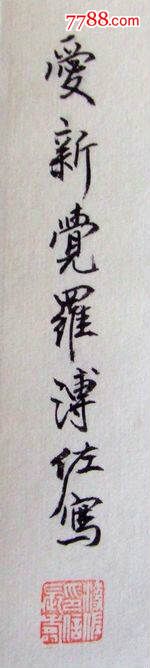 7788.com
愛新覺羅溥佐寫